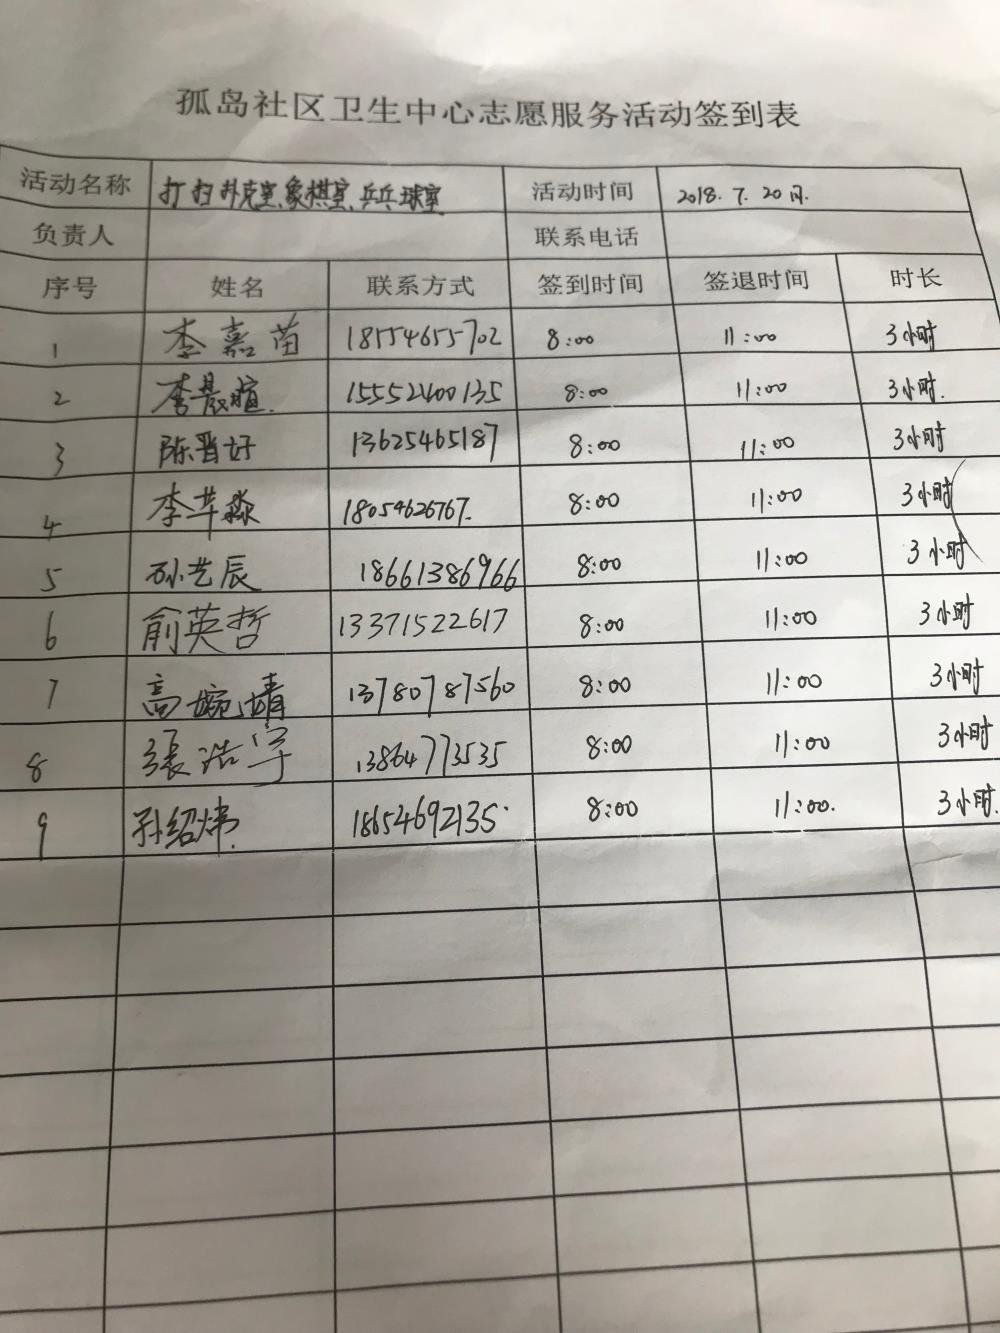 孤岛社区卫生中心志愿服务活动签到表
活动名称 打扫扑克室、象棋室、乒乓球室 活动时间 2018.7.20日.
负责人 联系电话
序号 姓名 联系方式 签到时间 签退时间 时长
1 李嘉苗 18154655702 8:00 11:00 3小时
2 李晨暄. 15552400135 8:00 11:00 3小时.
3 陈晋好 13625465187 8:00 11:00 3小时
4 李 淼 18054626767. 8:00 11:00 3小时
5 孙艺辰 18661386966 8:00 11:00 3小时
6 俞英哲 13371522617 8:00 11:00 3小时
7 高婉婧 13780787560 8:00 11:00 3小时
8 張浩宇 13864773535 8:00 11:00 3小时
9 孙绍炜. 18654692135. 8:00 11:00. 3小时.